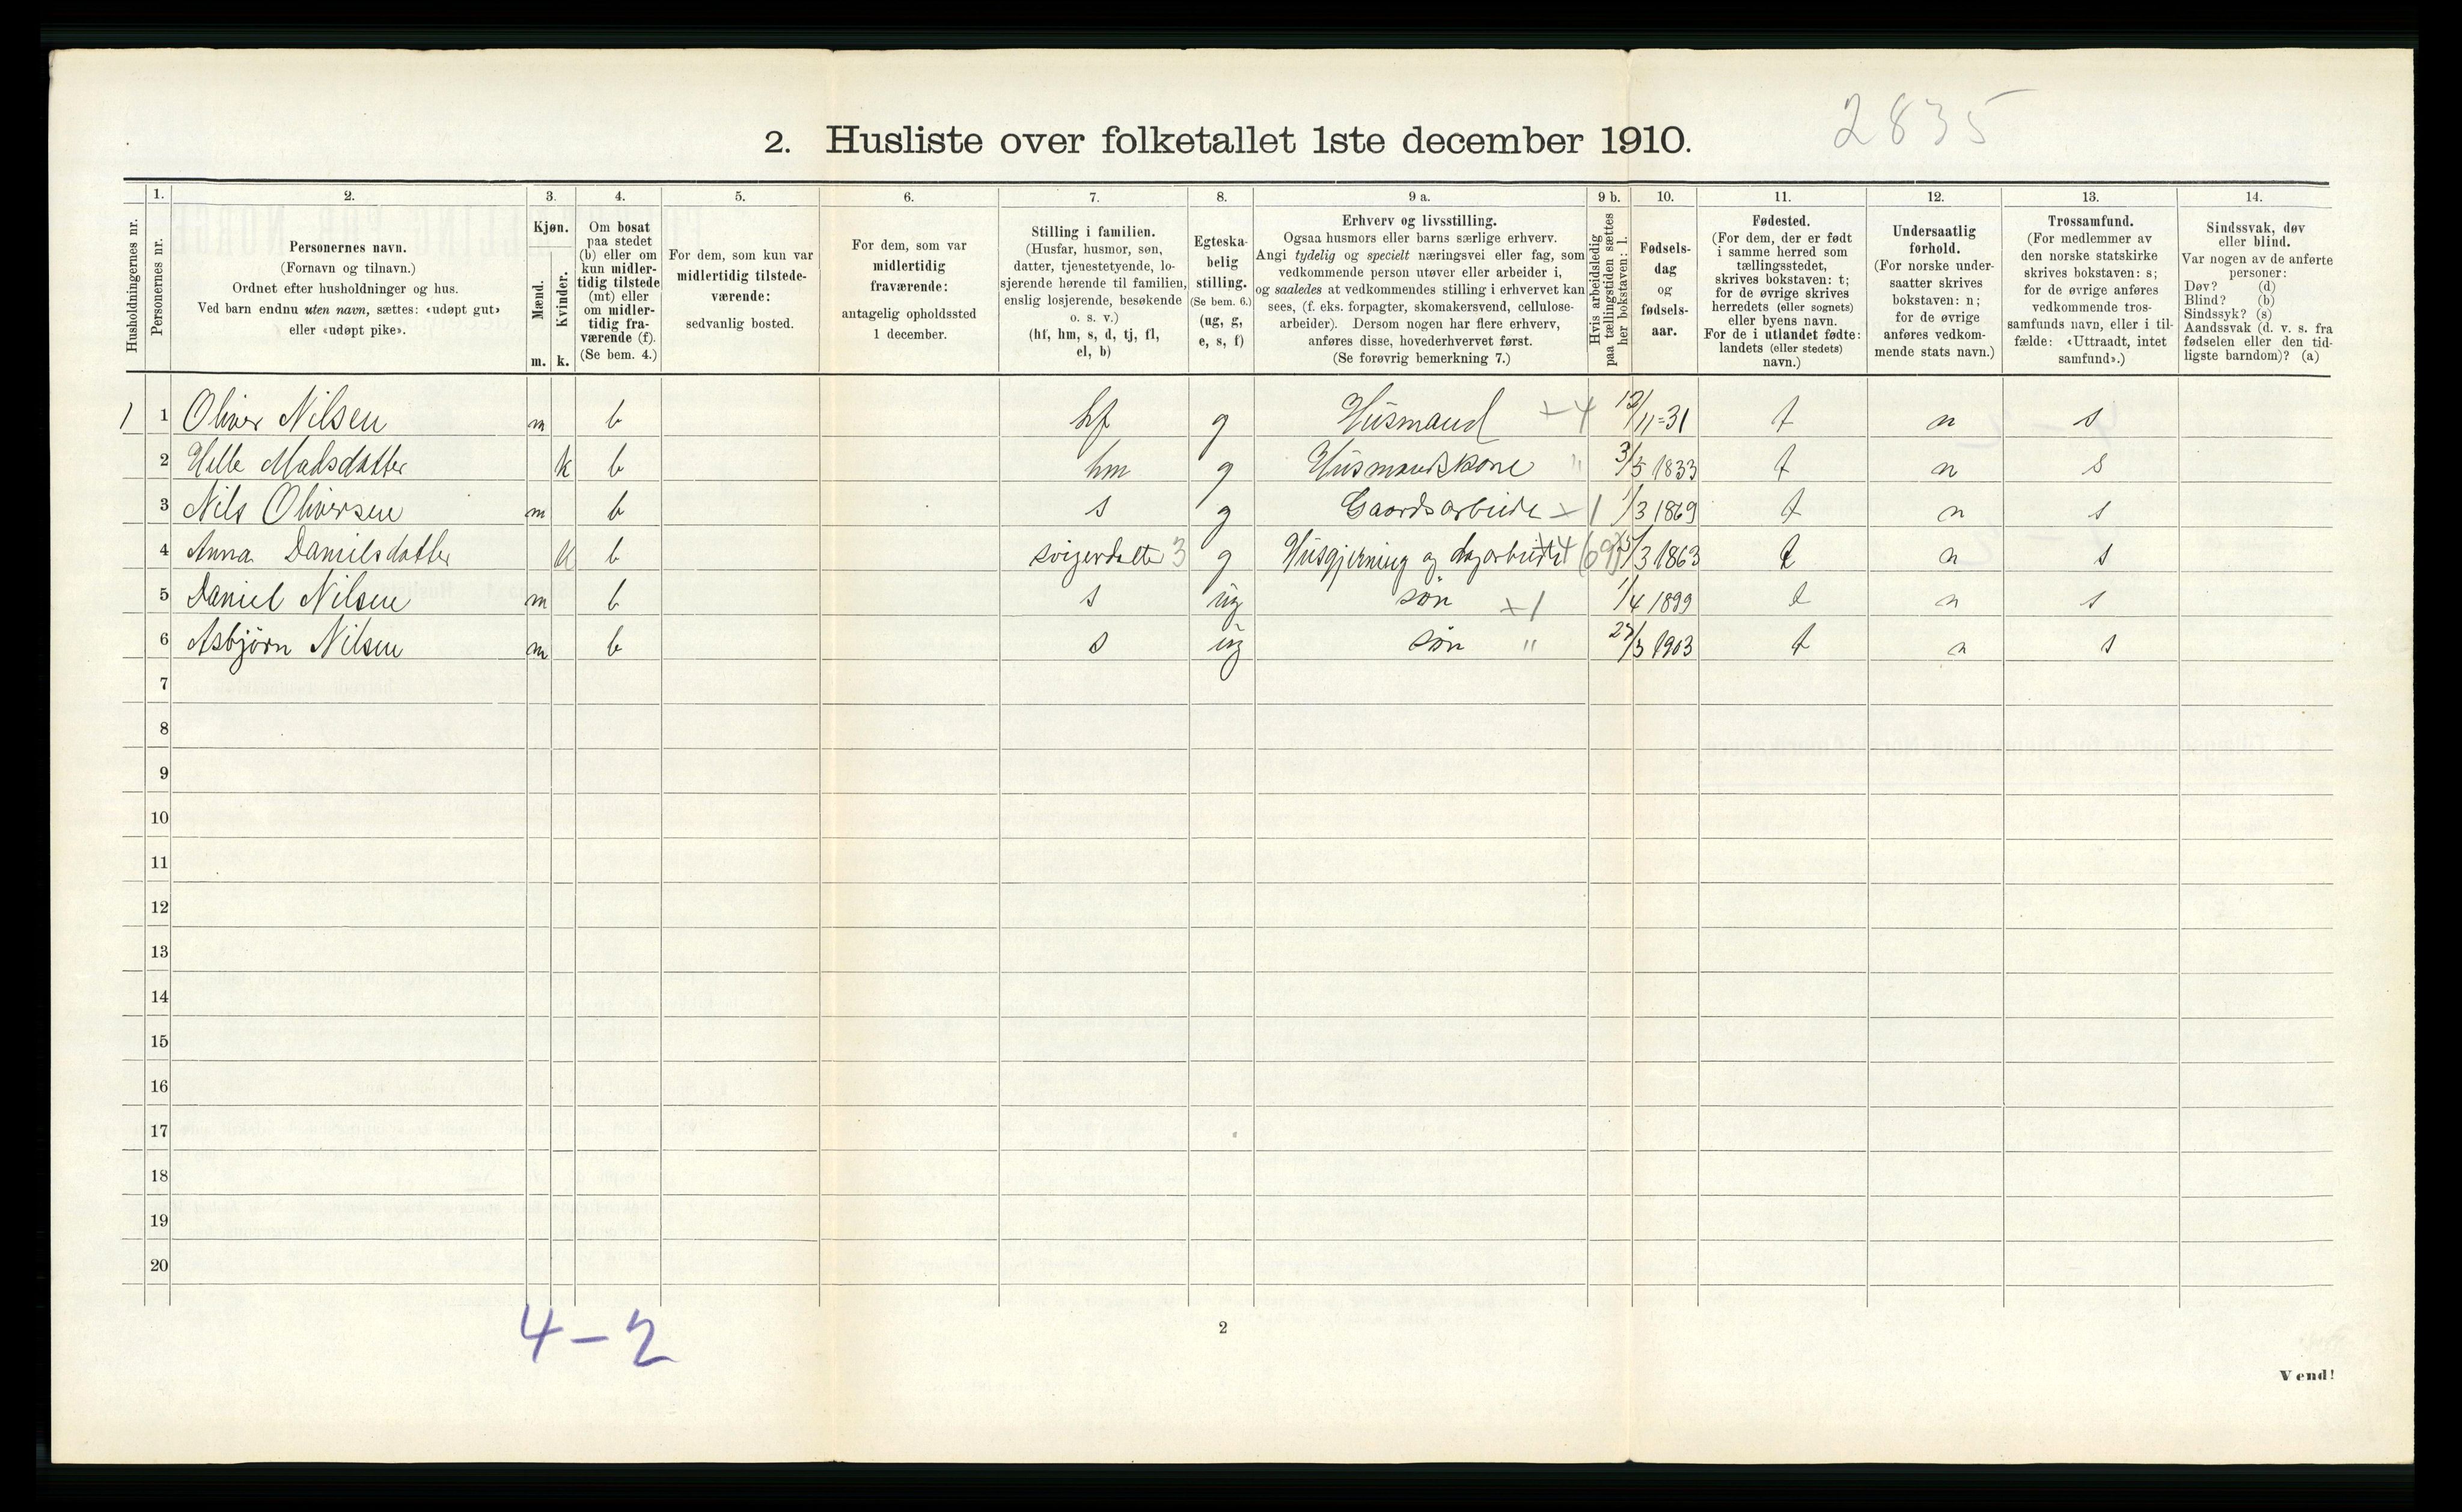 2835
2. Husliste over folketallet 1ste december 1910.
Husholdningernes nr.
1.
Personernes nr.
2.
Personernes navn.
(Fornavn og tilnavn.)
Ordnet efter husholdninger og hus.
Ved barn endnu uten navn, sættes: «udøpt gut»
eller «udøpt pike».
3.
Kjøn.
Mænd.
m.
Kvinder.
k.
4.
Om bosat
paa stedet
(b) eller om
kun midler-
tidig tilstede
(mt) eller
om midler-
tidig fra-
værende (f).
(Se bem. 4.)
5.
For dem, som kun var
midlertidig tilstede-
værende:
sedvanlig bosted.
6.
For dem, som var
midlertidig
fraværende:
antagelig opholdssted
1 december.
7.
Stilling i familien.
(Husfar, husmor, søn,
datter, tjenestetyende, lo-
sjerende hørende til familien,
enslig losjerende, besøkende
o. s. v.)
(hf, hm, s, d, tj, fl,
el, b)
8.
Egteska-
belig
stilling.
(Se bem. 6.)
(ug, g,
e, s, f)
9 a.
Erhverv og livsstilling.
Ogsaa husmors eller barns særlige erhverv.
Angi tydelig og specielt næringsvei eller fag, som
vedkommende person utøver eller arbeider i,
og saaledes at vedkommendes stilling i erhvervet kan
sees, (f. eks. forpagter, skomakersvend, cellulose-
arbeider). Dersom nogen har flere erhverv,
anføres disse, hovederhvervet først.
(Se forøvrig bemerkning 7.)
9 b.
Hvis arbeidsledig
paa tællingstiden sættes
her bokstaven: l.
10.
Fødsels-
dag
og
fødsels-
aar.
11.
Fødested.
(For dem, der er født
i samme herred som
tællingsstedet,
skrives bokstaven: t;
for de øvrige skrives
herredets (eller sognets)
eller byens navn.
For de i utlandet fødte:
landets (eller stedets)
navn.)
12.
Undersaatlig
forhold.
(For norske under-
saatter skrives
bokstaven: n;
for de øvrige
anføres vedkom-
mende stats navn.)
13.
Trossamfund.
(For medlemmer av
den norske statskirke
skrives bokstaven: s;
for de øvrige anføres
vedkommende tros-
samfunds navn, eller i til-
fælde: «Uttraadt, intet
samfund».)
14.
Sindssvak, døv
eller blind.
Var nogen av de anførte
personer:
Døv? (d)
Blind? (b)
Sindssyk? (s)
Aandssvak (d. v. s. fra
fødselen eller den tid-
ligste barndom)? (a)
1 1 Oliver Nilsen m b hf g Husmand +4 12/11-31 t n s
2 Madsdatter k b hm g Husmandskone " 3/5 1833 t n s
3 Nils Oliversen m b s g Gaardsarbeide +1 1/3 1869 t n s
4 Anna Danielsdatter k b svigerdatter 3 g Husgjerning og dagarbeidet /3 1863 t n s
5 Daniel Nilsen m b s ug søn +1 1/4 1899 t n s
6 Asbjørn Nilsen m b s ug søn " 27/3 1903 t n s
7
8
9
10
11
12
13
14
15
16
17
18
19
20
4-2
2
Vend!